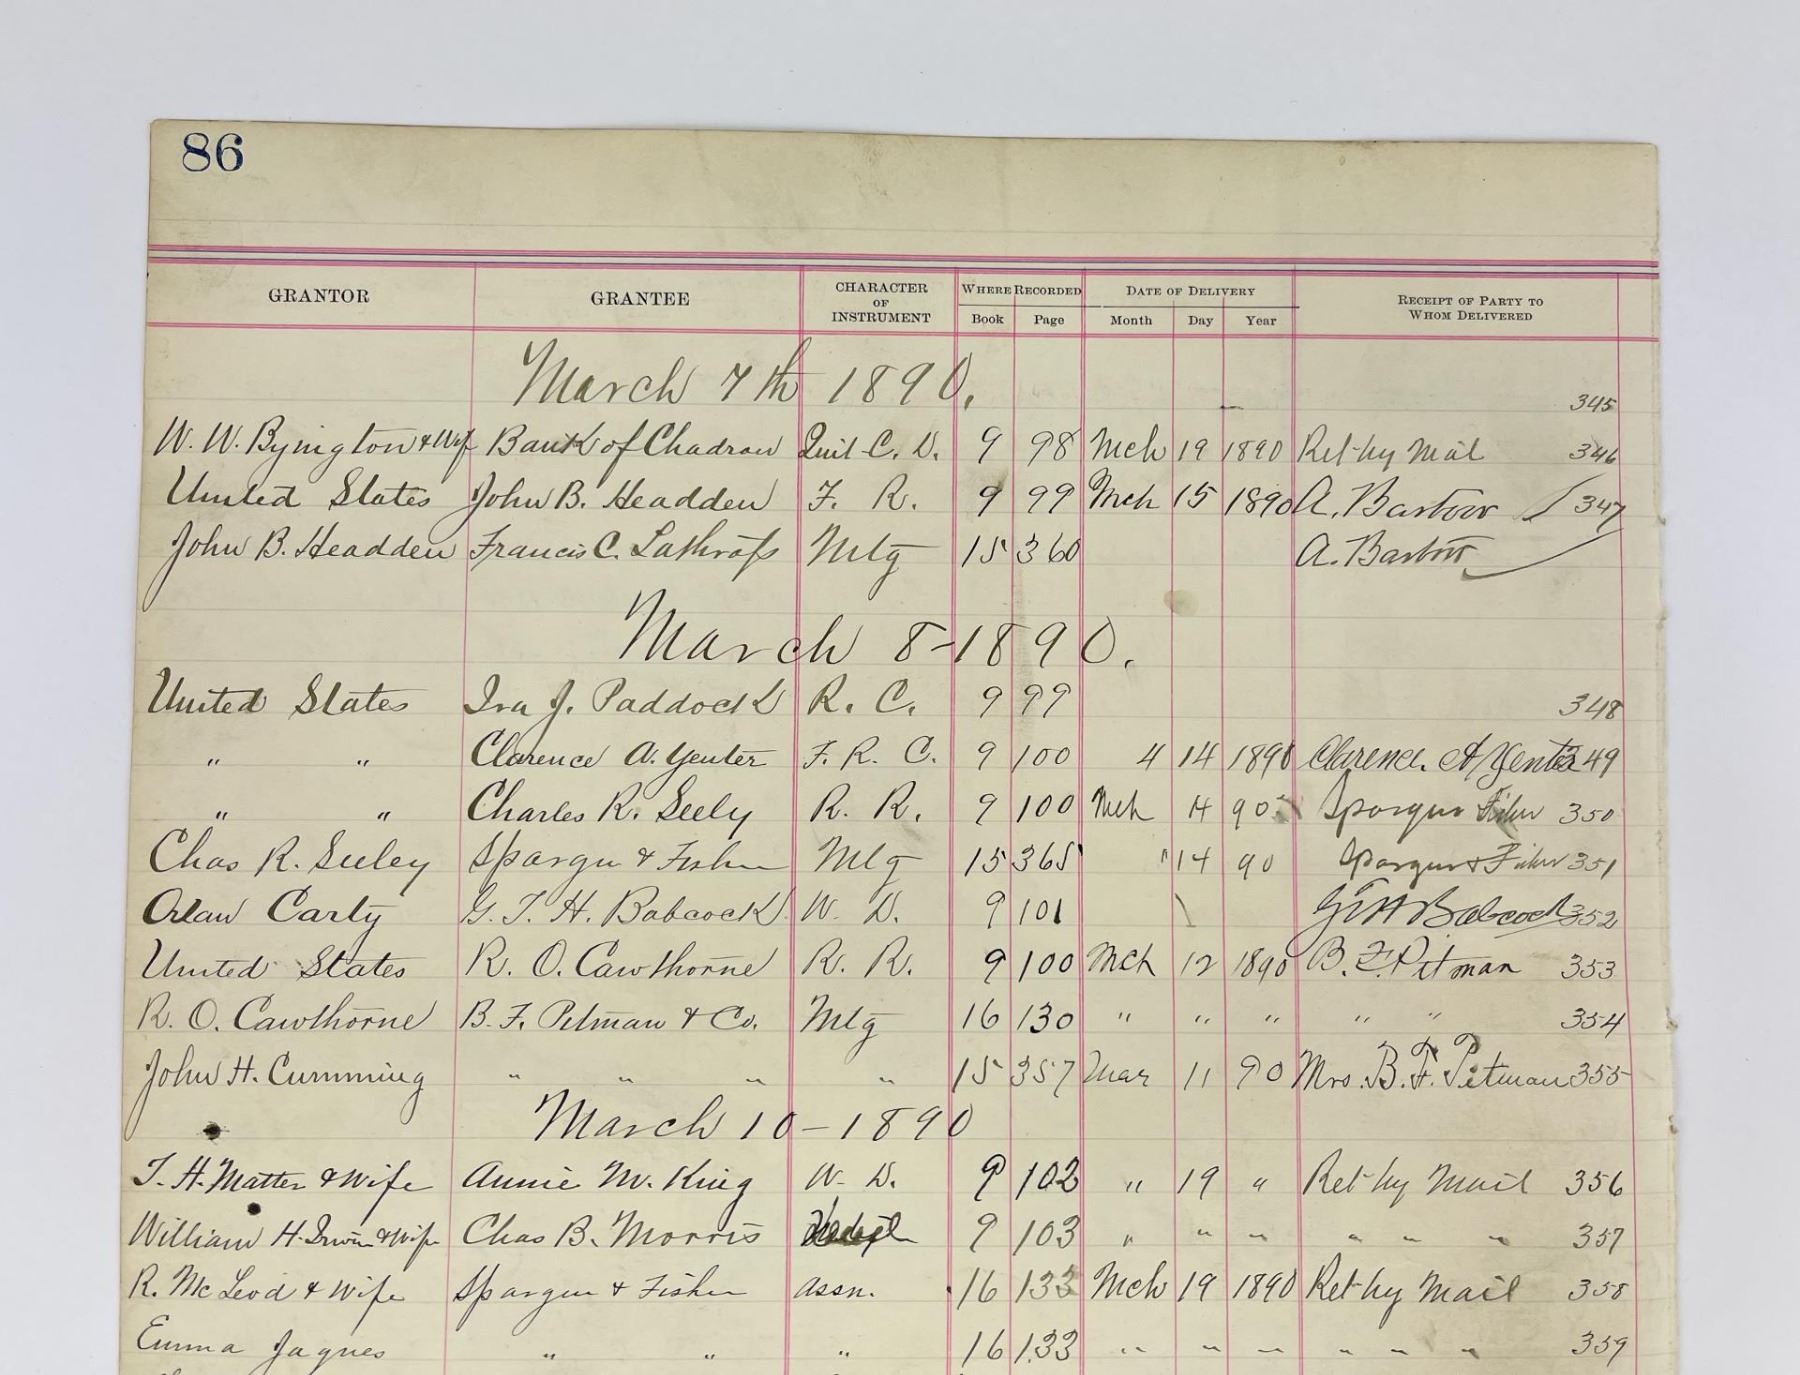 86
GRANTOR GRANTEE CHARACTER OF INSTRUMENT WHERE RECORDED Book Page DATE OF DELIVERY Month Day Year RECEIPT OF PARTY TO WHOM DELIVERED
March 7th 1890. 345
W. W. Byington & Wif Bank of Chadron Quit C. D. 9 98 Mch 19 1890 Ret by Mail 346
United States John B. Headden F. R. 9 99 Mch 15 1890 A. Bartow 347
John B. Headden Francis C. Lathrop Mtg 15 360 A. Bartow
March 8-1890.
United States Ira J. Paddock R. C. 9 99 348
" " Clarence A. Yenter F. R. C. 9 100 4 14 1890 Clarence A Yenter 349
" " Charles R. Seely R. R. 9 100 Mch 14 90 Spargur Fisher 350
Chas R. Seeley Spargur & Fisher Mtg 15 365 " 14 90 Spargur & Fisher 351
Orlan Carty G. T. H. Babcock W. D. 9 101 GTH Babcock 352
United States R. O. Cawthorne R. R. 9 100 Mch 12 1890 B. F. Pitman 353
R. O. Cawthorne B. F. Pitman & Co. Mtg 16 130 " " " " " 354
John H. Cumming " " " " 15 357 Mar 11 90 Mrs. B. F. Pitman 355
March 10-1890
T. H. Matter & Wife Annie M. King W. D. 9 102 " 19 " Ret by Mail 356
William H. Irwin & Wife Chas B. Morris 9 103 " " " " " " 357
R. McLeod & Wife Spargur & Fisher assn. 16 133 Mch 19 1890 Ret by Mail 358
Emma Jaques " " " 16 133 " " " " " " 359